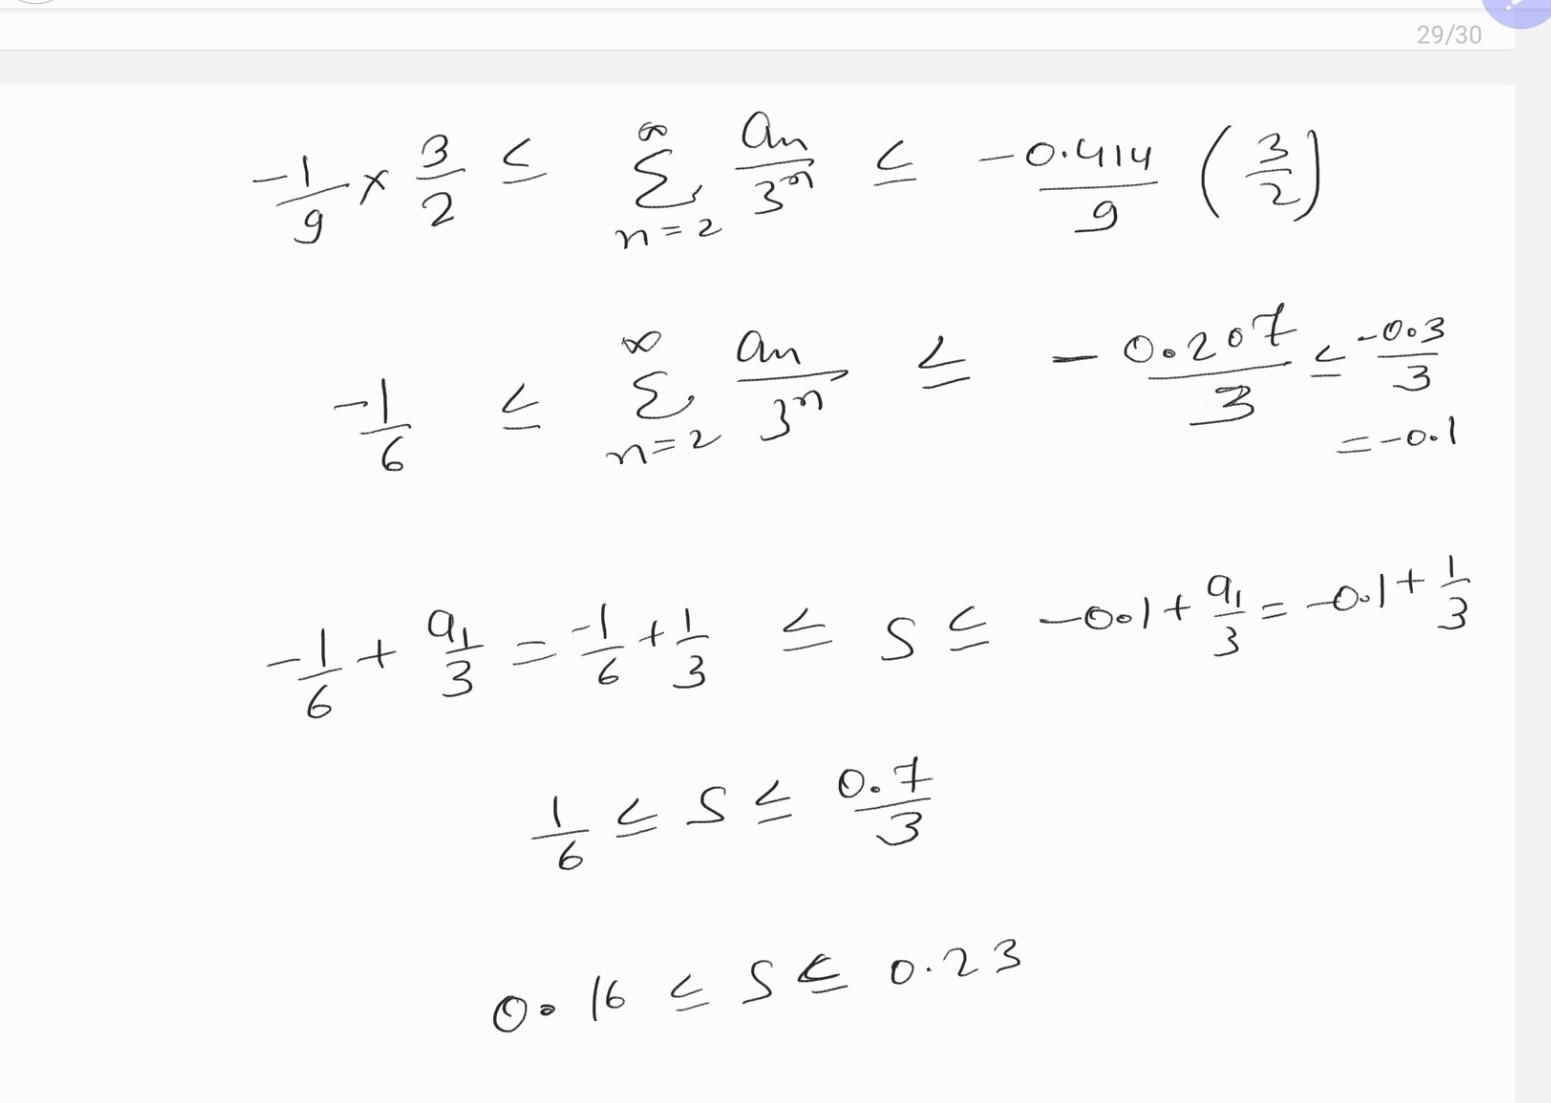 29/30
-1/9 × 3/2 ≤ ∞ Σ n=2 an/3^n ≤ -0.414/9 (3/2)
-1/6 ≤ ∞ Σ n=2 an/3^n ≤ -0.207/3 ≤ -0.3/3
= -0.1
-1/6 + a1/3 = -1/6 + 1/3 ≤ S ≤ -0.1 + a1/3 = -0.1 + 1/3
1/6 ≤ S ≤ 0.7/3
0.16 ≤ S ≤ 0.23